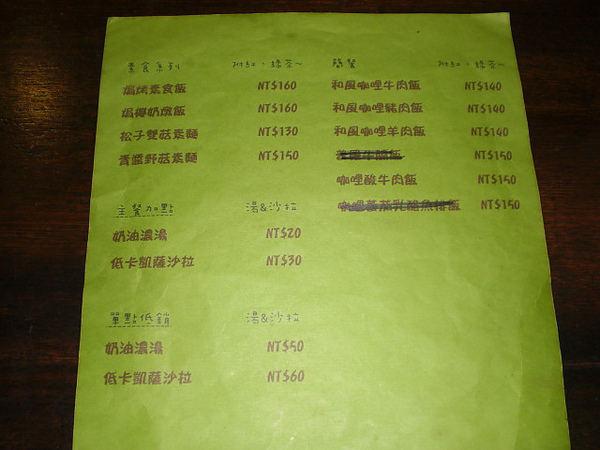 素食系列 附紅、綠茶~
焗烤素食飯 NT$160
焗椰奶燉飯 NT$160
松子雙菇素麵 NT$130
青醬野菇素麵 NT$150
主餐加點 湯&沙拉
奶油濃湯 NT$20
低卡凱薩沙拉 NT$30
單點低銷 湯&沙拉
奶油濃湯 NT$50
低卡凱薩沙拉 NT$60
簡餐 附紅、綠茶~
和風咖哩牛肉飯 NT$140
和風咖哩豬肉飯 NT$140
和風咖哩羊肉飯 NT$140
牛腩飯 NT$150
咖哩酸牛肉飯 NT$150
咖哩蕃茄乳酪魚排飯 NT$150